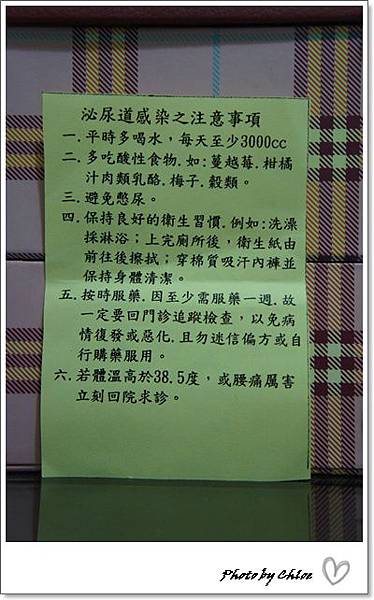 泌尿道感染之注意事項
一.平時多喝水，每天至少3000cc
二.多吃酸性食物.如:蔓越莓.柑橘
汁肉類乳酪.梅子.穀類。
三.避免憋尿。
四.保持良好的衛生習慣.例如:洗澡
採淋浴；上完廁所後，衛生紙由
前往後擦拭；穿棉質吸汗內褲並
保持身體清潔。
五.按時服藥.因至少需服藥一週.故
一定要回門診追蹤檢查，以免病
情復發或惡化.且勿迷信偏方或自
行購藥服用。
六.若體溫高於38.5度，或腰痛厲害
立刻回院求診。
Photo by Chloe